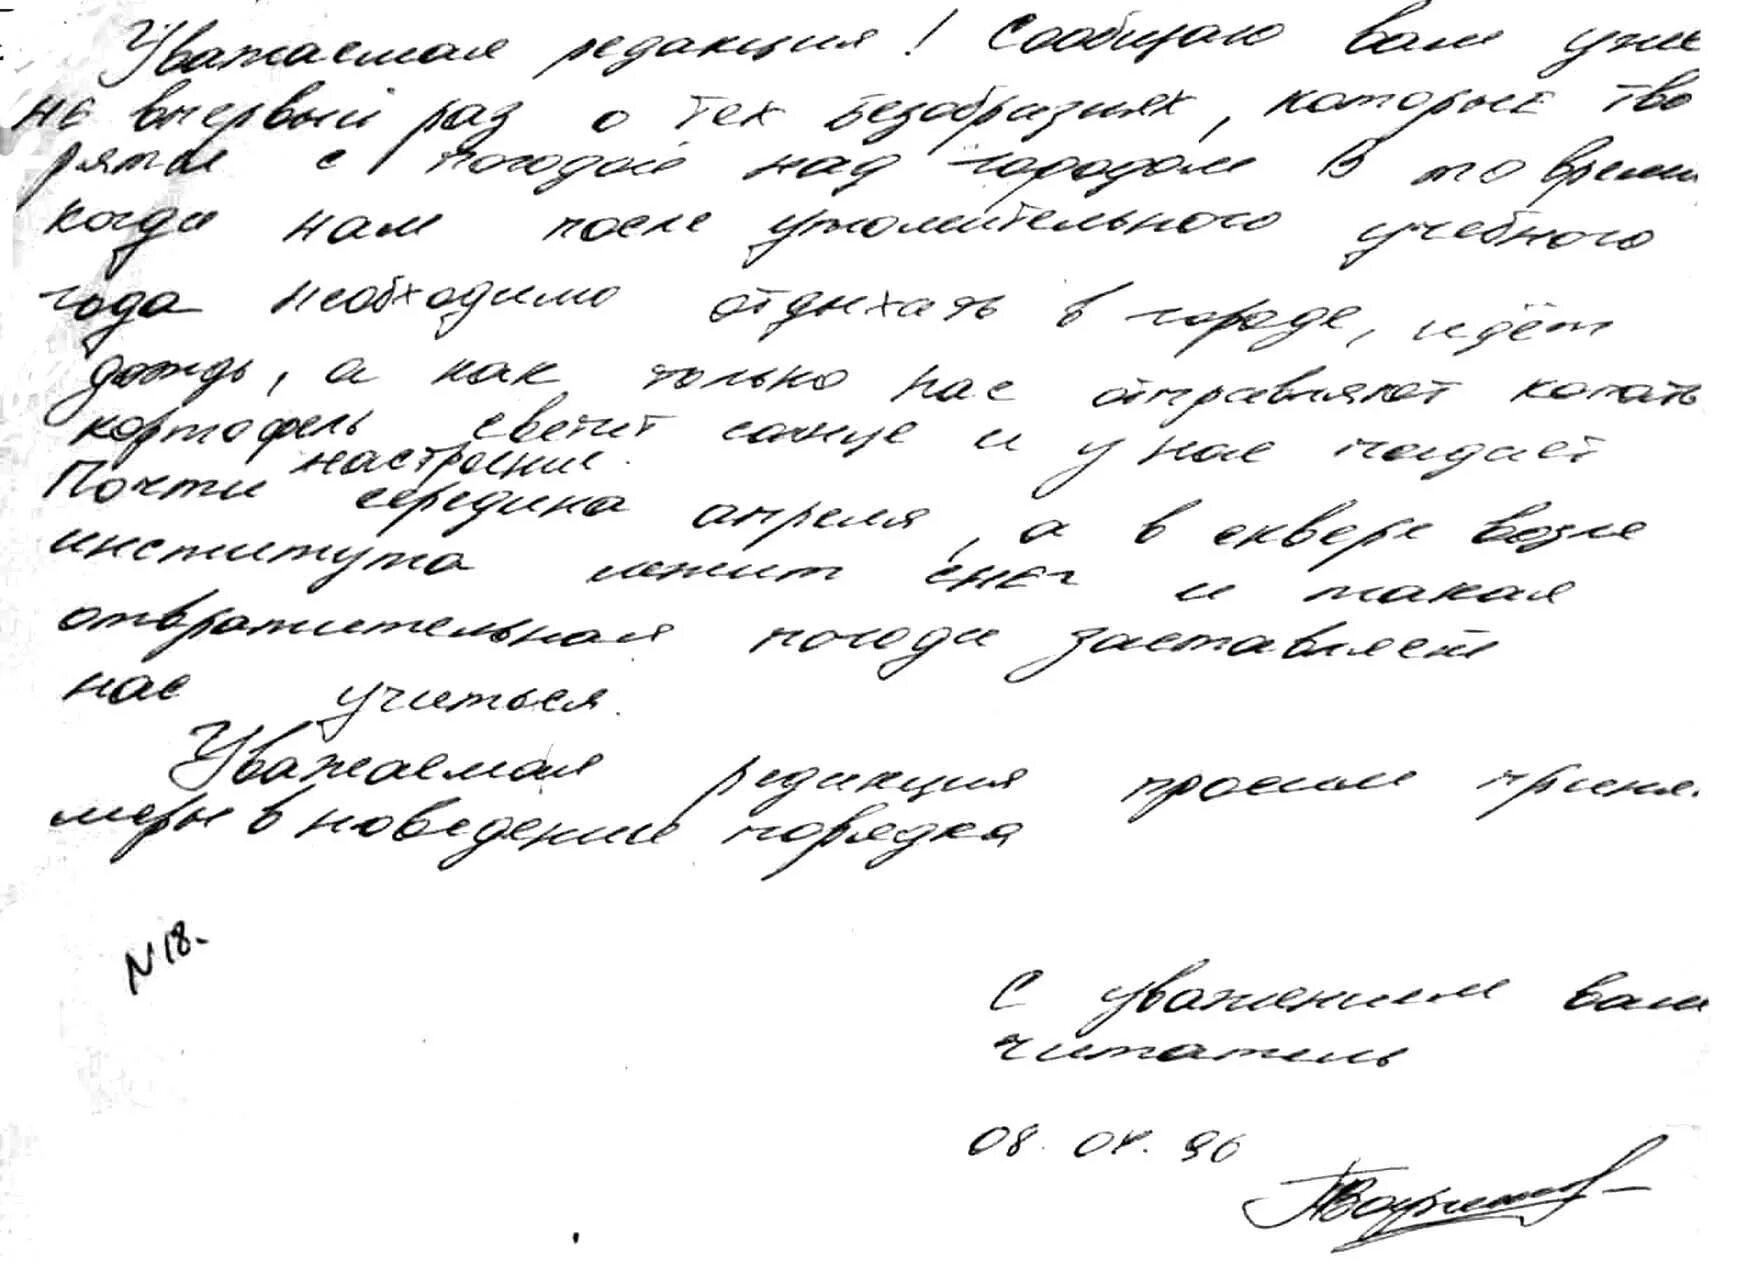 Уважаемая редакция! Сообщаю вам уже
не впервый раз о тех безобразиях, которые тво
рятся с погодой над городом В то время
когда нам после утомительного учебного
года необходимо отдыхать в городе, идёт
дождь, а как только нас отправляют копать
картофель светит солнце и у нас падает
настроение.
Почти середина апреля, а в сквере возле
института лежит снег и такая
отвратительная погода заставляет
нас учиться.
Уважаемая редакция просим приня
меры в новедение порядка
N 18.
С уважением ваш
читатель
08. 04. 96